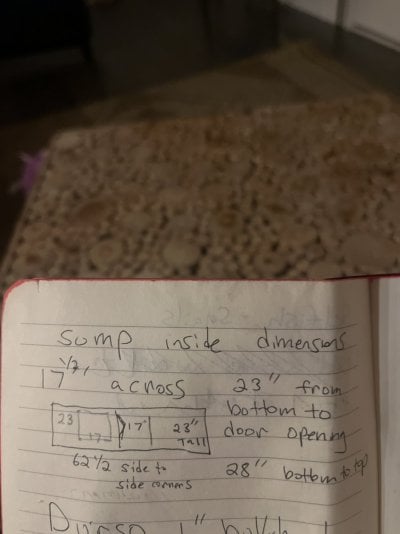 sump inside dimensions
17 1/2" across
23" from bottom to door opening
23 17 17" 23" Tall
62 1/2 side to side corners
28" bottom to top
Durso 1"